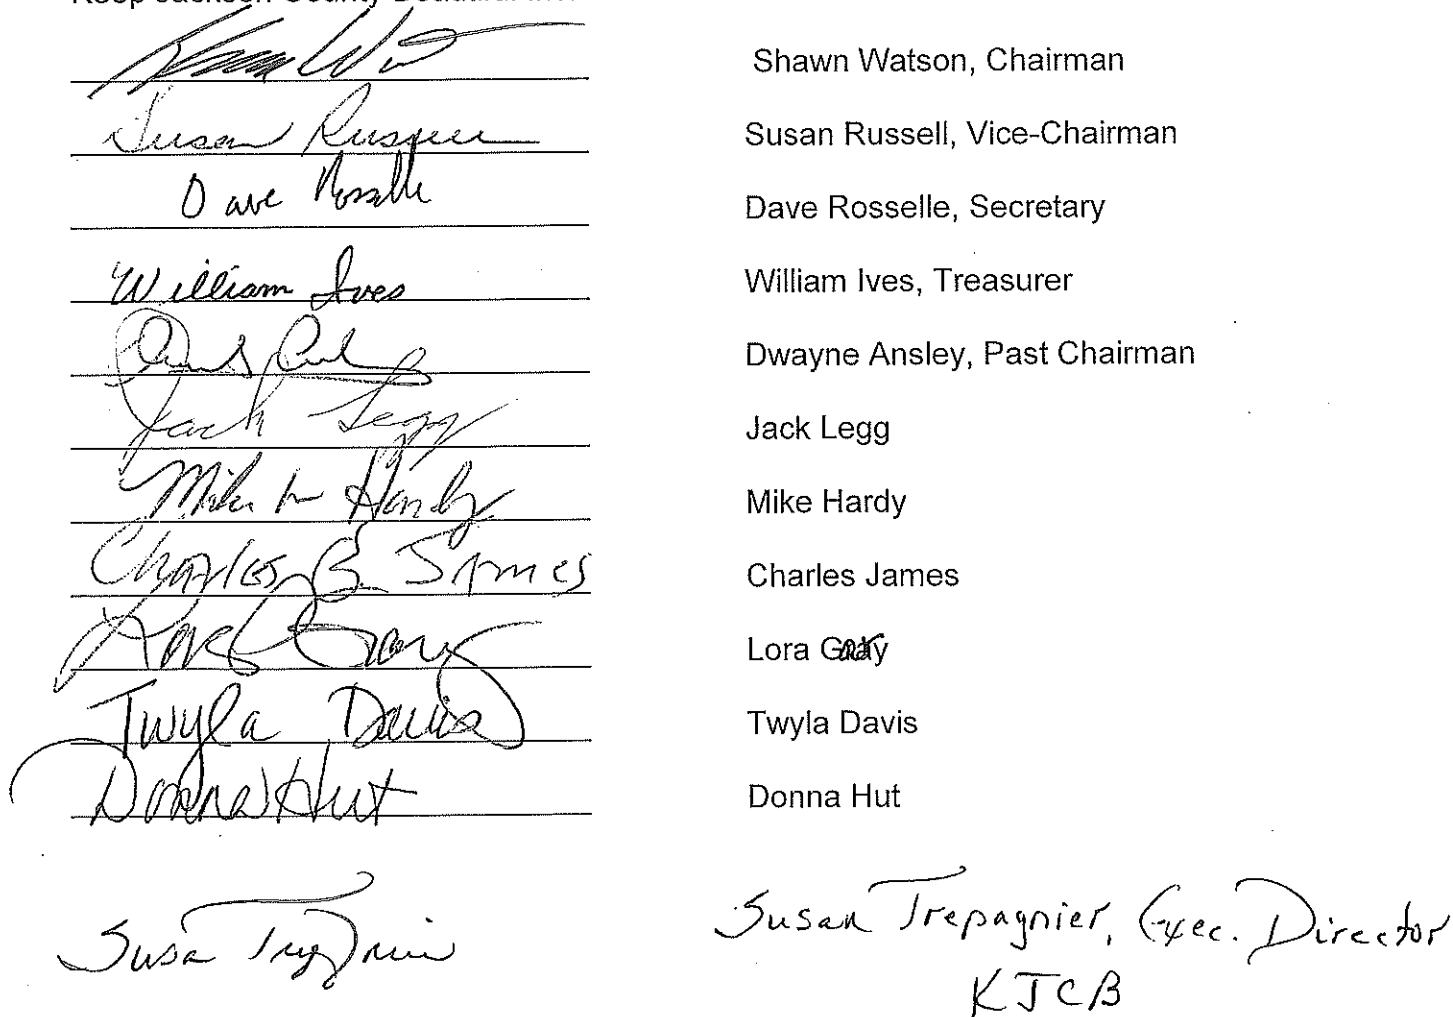 Keep Jackson County Beautiful
Shawn Watson, Chairman
Susan Russell Susan Russell, Vice-Chairman
Dave Rosselle Dave Rosselle, Secretary
William Ives William Ives, Treasurer
Dwayne Ansley, Past Chairman
Jack Legg Jack Legg
Mike Hardy Mike Hardy
Charles B James Charles James
Lora Gary Lora
Twyla Davis Twyla Davis
Donna Hut Donna Hut
Susan Trepagnier, Exec. Director
KJCB